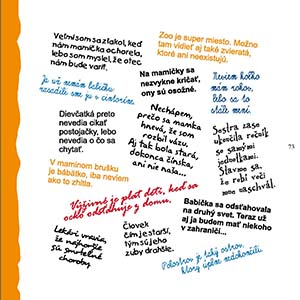 Veľmi som sa zľakol, keď
nám mamička ochorela,
lebo som myslel, že otec
nám bude variť.
Zoo je super miesto. Možno
tam vidieť aj také zvieratá,
ktoré ani neexistujú.
Je už nemám babičku
zasadili sme ju v cintoríne.
Na mamičky sa
nezvykne kričať,
ony sú osožné.
Neviem koľko
mám rokov,
lebo sa to
stále mení.
Dievčatká preto
nevedia cikať
postojačky, lebo
nevedia o čo sa
chytať.
Nechápem,
prečo sa mamka
hnevá, že som
rozbil vázu.
Aj tak bola stará,
dokonca čínska,
ani nie naša...
Sestra zase
ukončila ročník
so samými
jednotkami.
Stavme sa,
že robí veci
mne naschvál.
73
V maminom brušku
je bábätko, iba neviem
ako to zhltla.
Výživné je plat detí, keď sa
ocko odsťahuje z domu.
Babička sa odsťahovala
na druhý svet. Teraz už
aj ja budem mať niekoho
v zahraničí...
Lekári vravia,
že najhoršie
sú smrteľné
choroby.
Človek
čím je starší,
tým sú jeho
zuby drahšie.
Polostrov je taký ostrov,
ktorý úplne nedokončili.